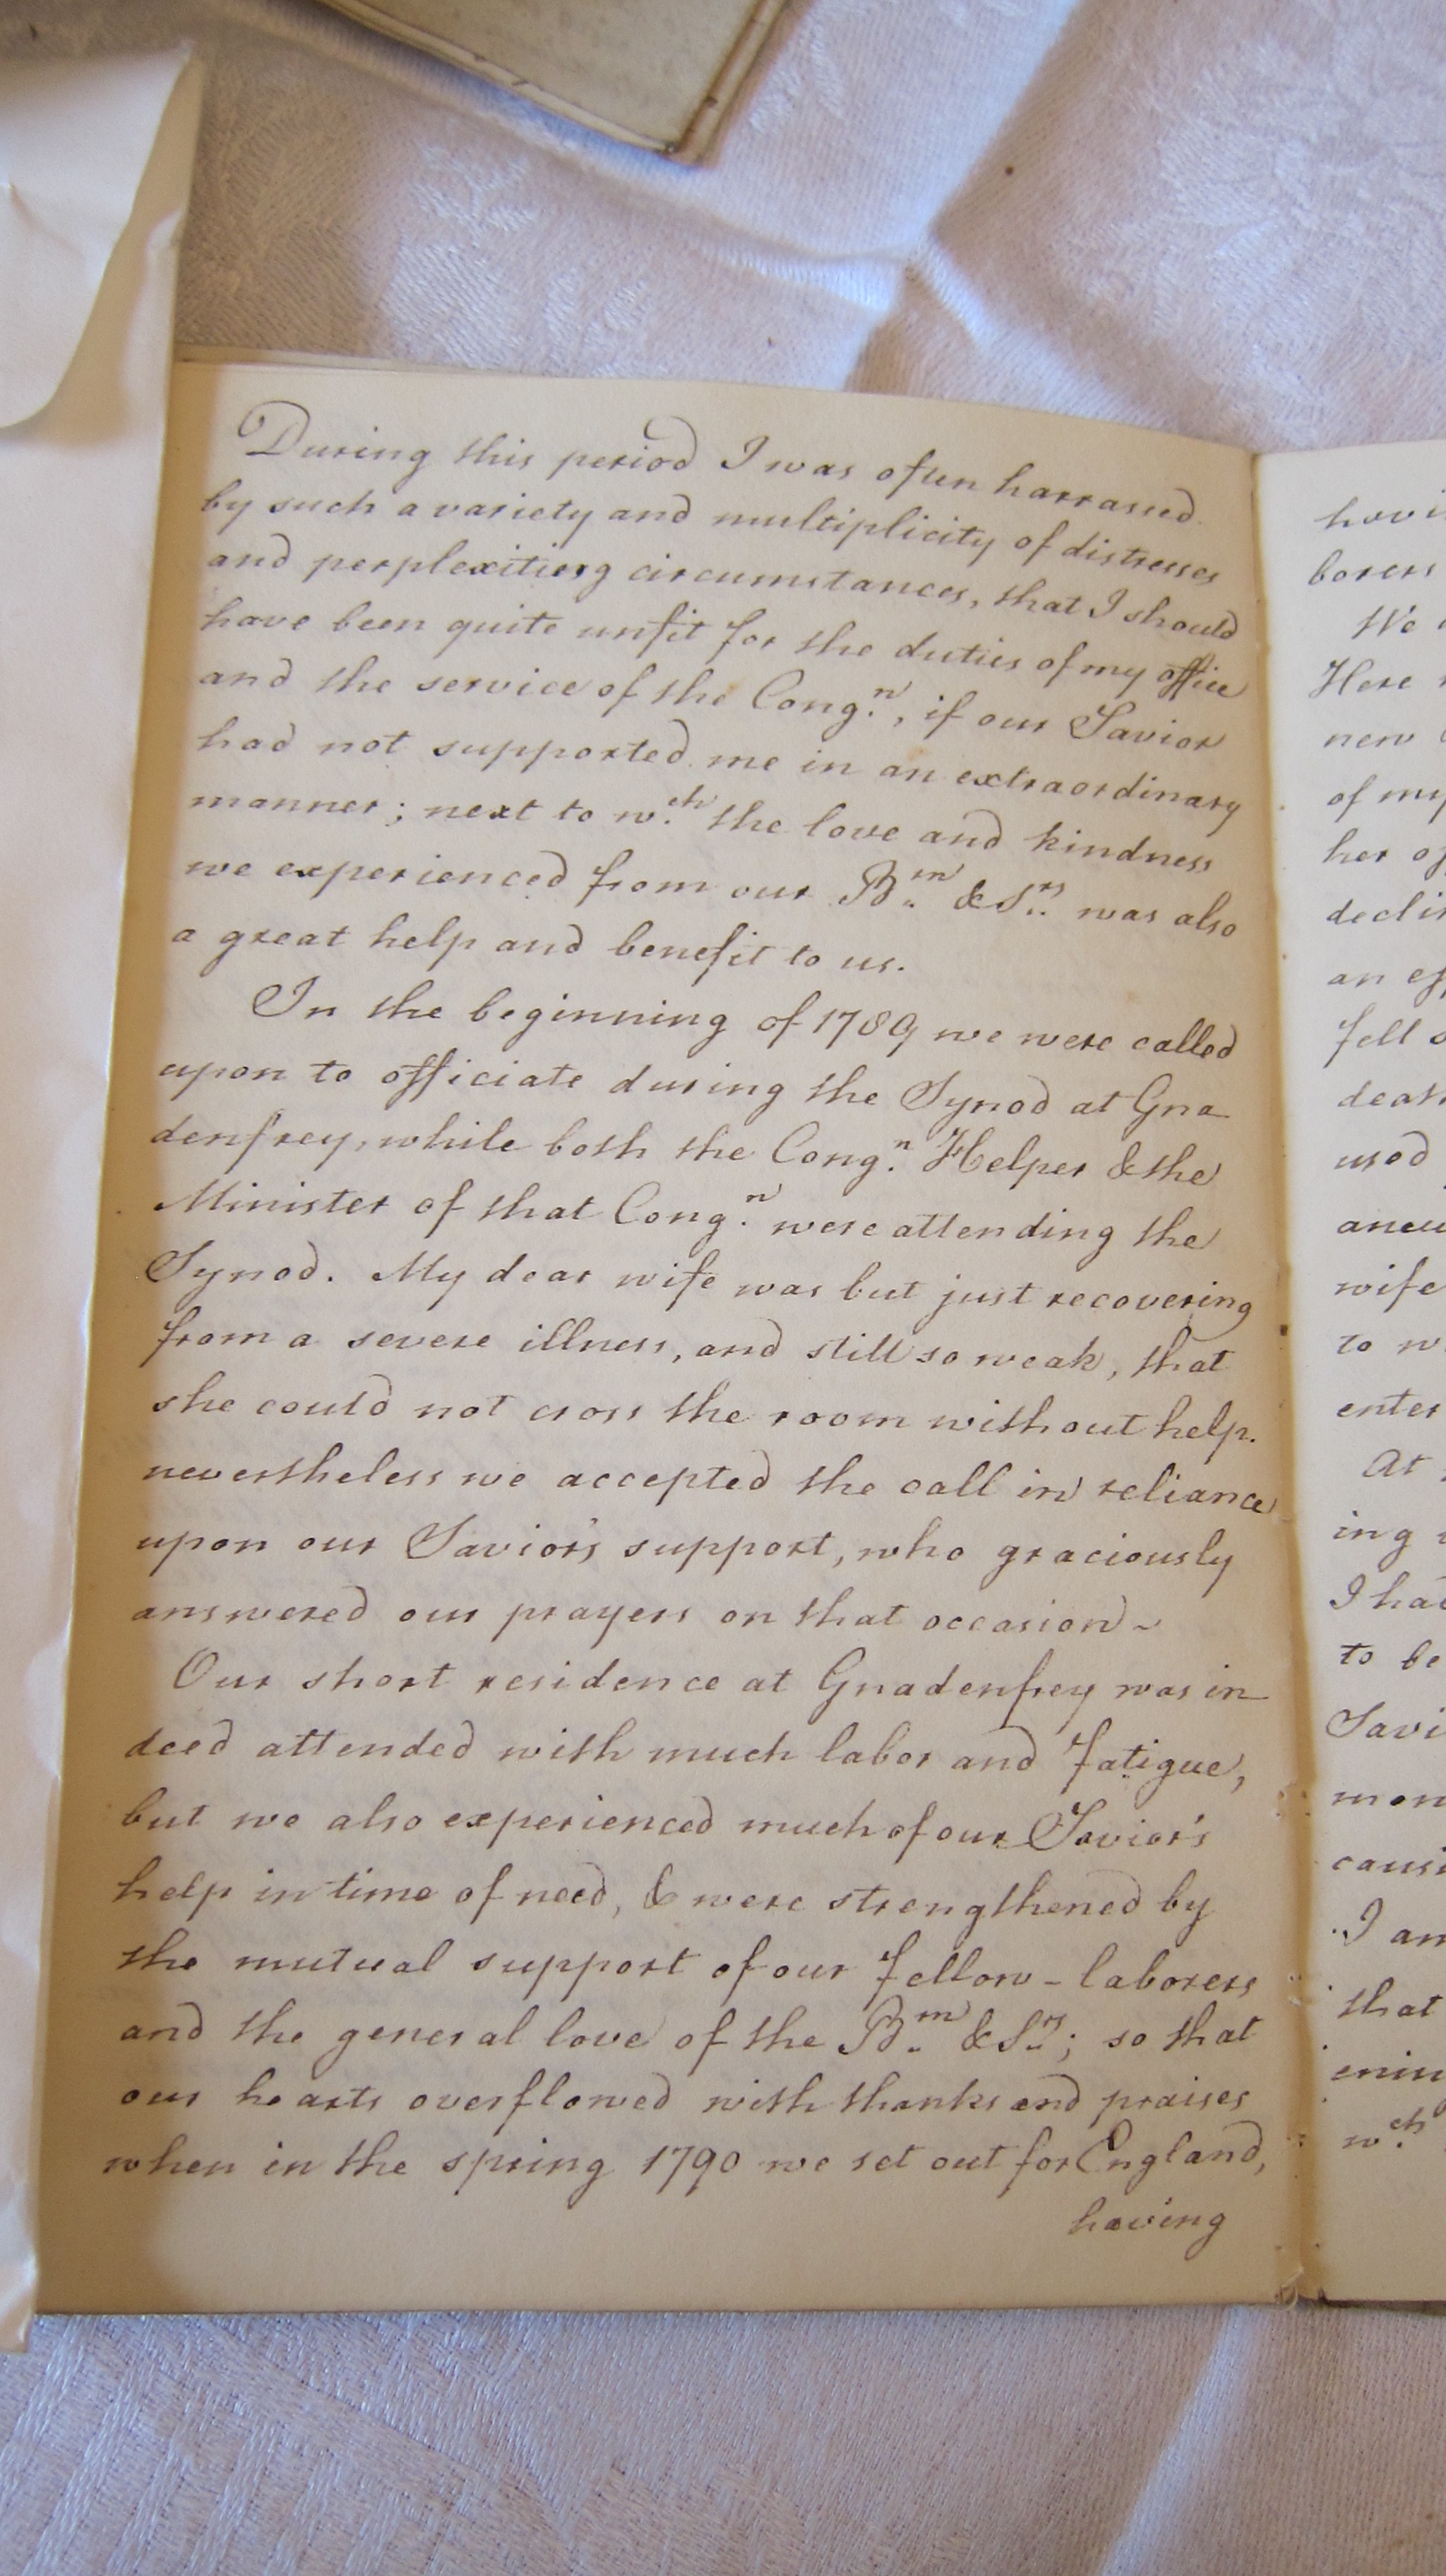 During this period I was often harrassed
by such a variety and multiplicity of distresses
and perplexitieng circumstances, that I should
have been quite unfit for the duties of my office
and the service of the Cong.n, if our Savior
had not supported me in an extraordinary
manner; next to w.ch the love and kindness
we experienced from our B.rn & S.rs was also
a great help and benefit to us.
In the beginning of 1789 we were called
upon to officiate during the Synod at Gna
denfrey, while both the Cong.n Helper & the
Minister of that Cong.n were attending the
Synod. My dear wife was but just recovering
from a severe illness, and still so weak, that
she could not cross the room without help.
nevertheless we accepted the call in reliance
upon our Savior's support, who graciously
answered our prayers on that occasion ~
Our short residence at Gnadenfrey was in
deed attended with much labor and fatigue,
but we also experienced much of our Savior's
help in time of need, & were strengthened by
the mutual support of our fellow-laborers
and the general love of the B.rn & S.rs; so that
our hearts overflowed with thanks and praises
when in the spring 1790 we set out for England,
having
havi
borers
We
Here
new
of my
her
decli
an
fell
deat
used
wife
to w
enter
At
ing
I had
to be
Savi
mon
causi
I am
that
w.ch